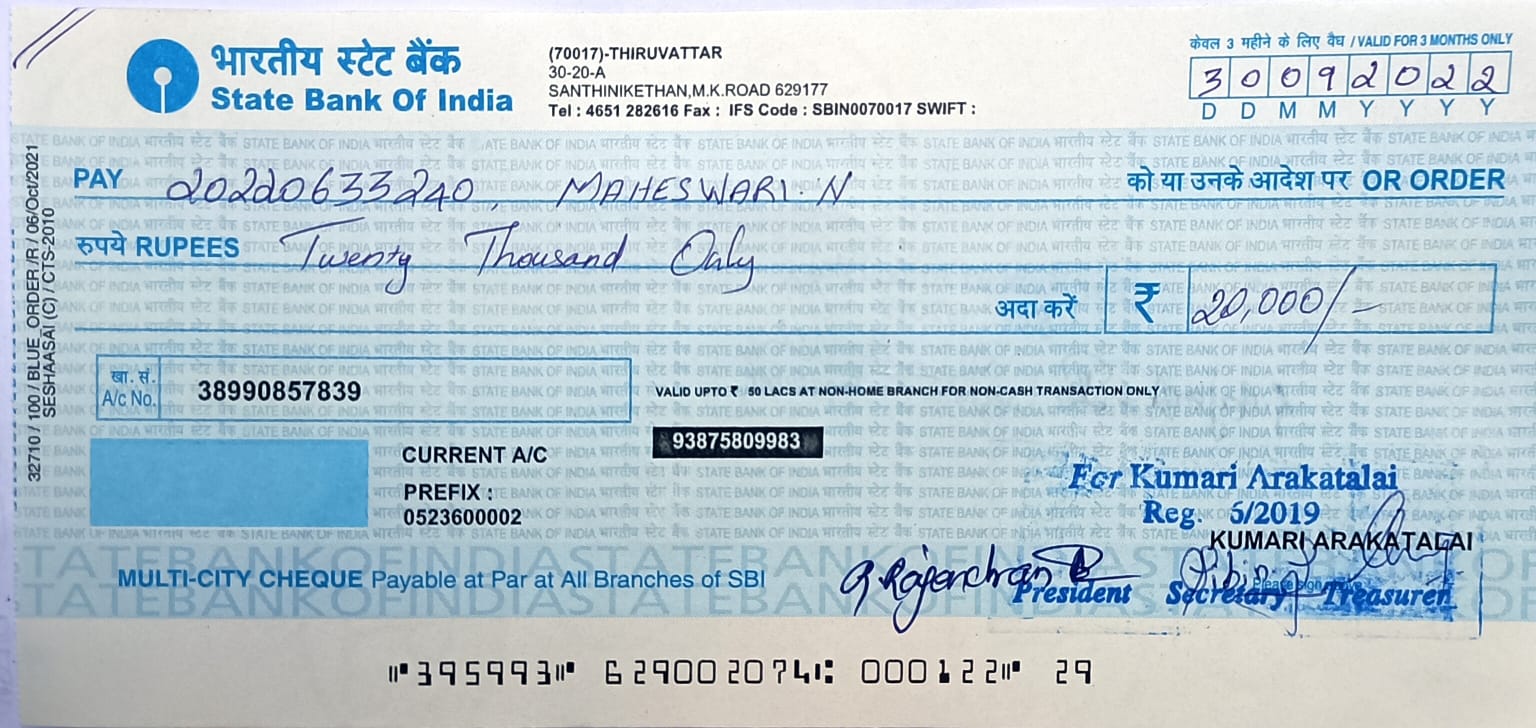 भारतीय स्टेट बैंक
State Bank Of India
(70017)-THIRUVATTAR
30-20-A
SANTHINIKETHAN,M.K.ROAD 629177
Tel : 4651 282616 Fax : IFS Code : SBIN0070017 SWIFT :
केवल 3 महीने के लिए वैध / VALID FOR 3 MONTHS ONLY
3 0 0 9 2 0 2 2
D D M M Y Y Y Y
PAY 20220633240, MAHESWARI. N को या उनके आदेश पर OR ORDER
रुपये RUPEES Twenty Thousand Only
अदा करें ₹ 20,000/-
खा. सं.
A/c No. 38990857839
VALID UPTO ₹ 50 LACS AT NON-HOME BRANCH FOR NON-CASH TRANSACTION ONLY
93875809983
CURRENT A/C
PREFIX :
0523600002
For Kumari Arakatalai
Reg. 5/2019
KUMARI ARAKATALAI
MULTI-CITY CHEQUE Payable at Par at All Branches of SBI
President Secretary Treasurer
32710 / 100 / BLUE_ORDER /R / 06/Oct/2021
SESHAASAI (C) / CTS-2010
⑈395993⑈ 629002074⑆ 000122⑈ 29